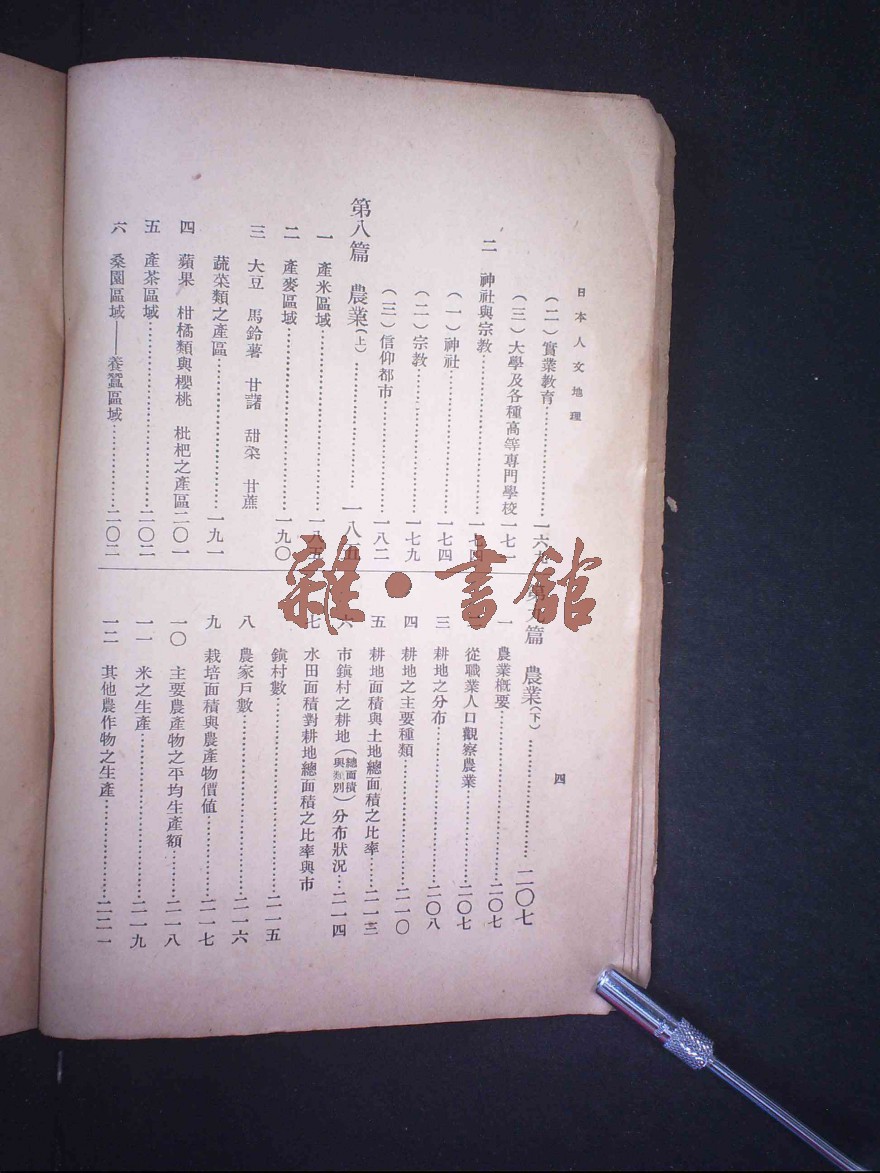 日本人文地理
四
(二)實業教育……一六九
(三)大學及各種高等專門學校一七一
二 神社與宗教……一七四
(一)神社……一七四
(二)宗教……一七九
(三)信仰都市……一八二
第八篇 農業(上)……一八五
一 產米區域……一八五
二 產麥區域……一九〇
三 大豆 馬鈴薯 甘藷 甜菜 甘蔗
蔬菜類之產區……一九一
四 蘋果 柑橘類與櫻桃 枇杷之產區二〇一
五 產茶區域……二〇二
六 桑園區域——養蠶區域……二〇二
第九篇 農業(下)……二〇七
一 農業概要……二〇七
二 從職業人口觀察農業……二〇七
三 耕地之分布……二〇八
四 耕地之主要種類……二一〇
五 耕地面積與土地總面積之比率……二一三
六 市鎮村之耕地(總面積與類別)分布狀況…二一四
七 水田面積對耕地總面積之比率與市
鎮村數……二一五
八 農家戶數……二一六
九 栽培面積與農產物價值……二一七
一〇 主要農產物之平均生產額……二一八
一一 米之生產……二一九
一二 其他農作物之生產……二二一
雜·書館